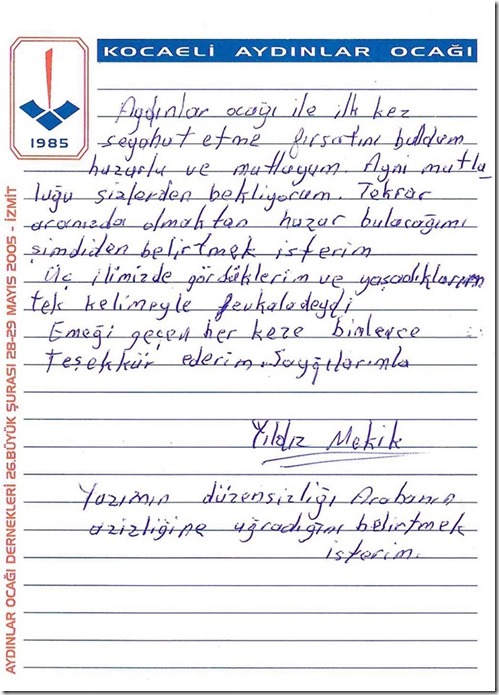 KOCAELİ AYDINLAR OCAĞI
1985
AYDINLAR OCAĞI DERNEKLERİ 26.BÜYÜK ŞURASI 28-29 MAYIS 2005 - İZMİT
Aydınlar ocağı ile ilk kez
seyahut etme fırsatını buldum
huzurlu ve mutluyum. Ayni mutlu_
luğu sizlerden bekliyorum. Tekrar
aranızda olmaktan huzur bulacağımı
şimdiden belirtmek isterim
Üç ilimizde gördüklerim ve yaşadıklarım
tek kelimeyle fevkaladeydi
Emeği geçen her keze binlerce
teşekkür ederim. Saygılarımla
Yıldız Mekik
Yazımın düzensizliği Arabanın
azizliğine uğradığını belirtmek
isterim.